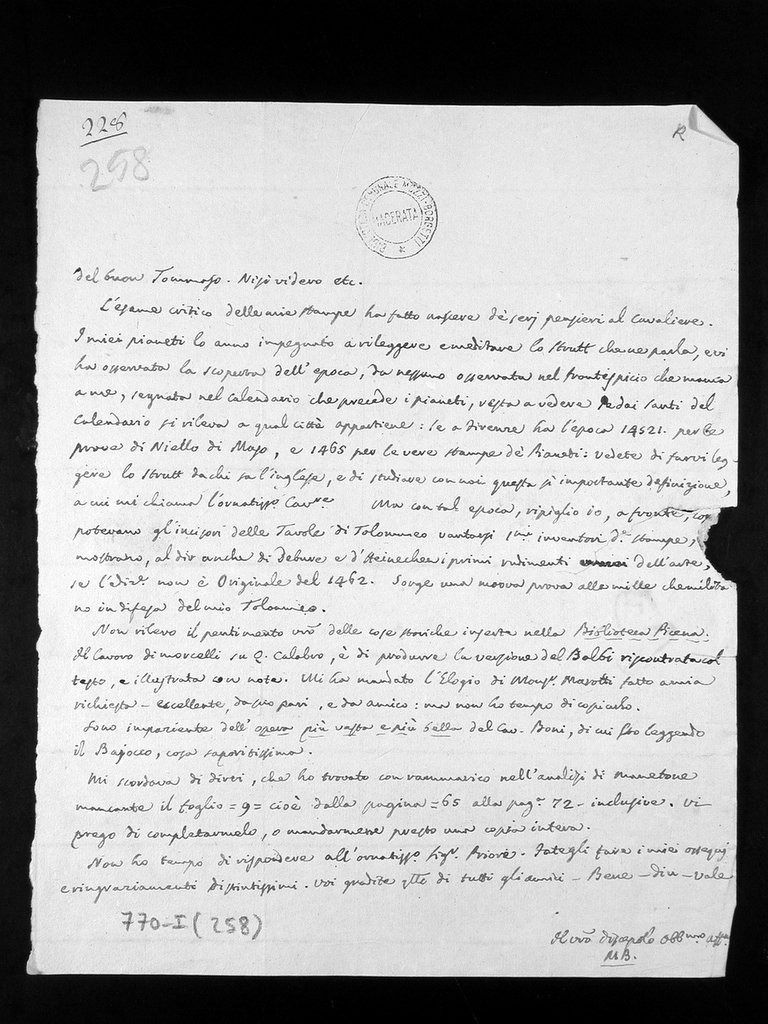 228
258
R
BIBLIOTECA COMUNALE MOZZI-BORGETTI
MACERATA
del buon Tommaso. Nisi videro etc.
L'esame critico delle mie stampe ha fatto nascere de' serj pensieri al Cavaliere.
I miei pianeti lo anno impegnato a rileggere e meditare lo Strutt che ne parla, e vi
ha osservata la scoperta dell'epoca, da nessuno osservata nel frontespicio che manca
a me, segnata nel calendario che precede i pianeti, resta a vedere se dai santi del
Calendario si rileva a qual città appartiene: se a Firenze ha l'epoca 1452. per le
prove di Niello di Maso, e 1465 per le vere stampe de' Pianeti: vedete di farvi leg-
gere lo Strutt da chi sa l'inglese, e di studiare con noi questa sì importante definizione,
a cui mi chiama l'ornatisso. Cavre. Ma con tal epoca, ripiglio io, a fronte, co
potevano gl'incisori delle Tavole di Tolommeo vantarsi inventori d. stampe,
mostrano, al dir anche di Debure e d'Heinechen i primi rudimenti dell'arte,
se l'ediz. non è Originale del 1462. Sorge una nuova prova alle mille che milita
no in difesa del mio Tolommeo.
Non rilevo il pentimento vro delle cose storiche inserta nella Biblioteca Picena.
Il lavoro di morcelli su Q. Calabro, è di produrre la versione del Balbi riscontrata col
testo, e illustrata con note. Mi ha mandato l'Elogio di Monsr. Marotti fatto a mia
richiesta - eccellente, da suo pari, e da amico: ma non ho tempo di copiarlo.
Sono impaziente dell'opera più vasta e più bella del Cav. Boni, di cui sto leggendo
il Bajocco, cosa saporitissima.
Mi scordava di dirvi, che ho trovato con rammarico nell'analisi di manetone
mancante il foglio = 9 = cioè dalla pagina = 65 alla pag. 72 - inclusive. Vi
prego di completarmelo, o mandarmene presto una copia intera.
Non ho tempo di rispondere all'ornatisso. Sigr. Priore. Fategli fare i miei ossequj
e ringraziamenti distintissimi. Voi gradite qlli di tutti gli amici - Bene - diu - vale
Il vro discepolo obbmo affmo
M B.
770-I (258)